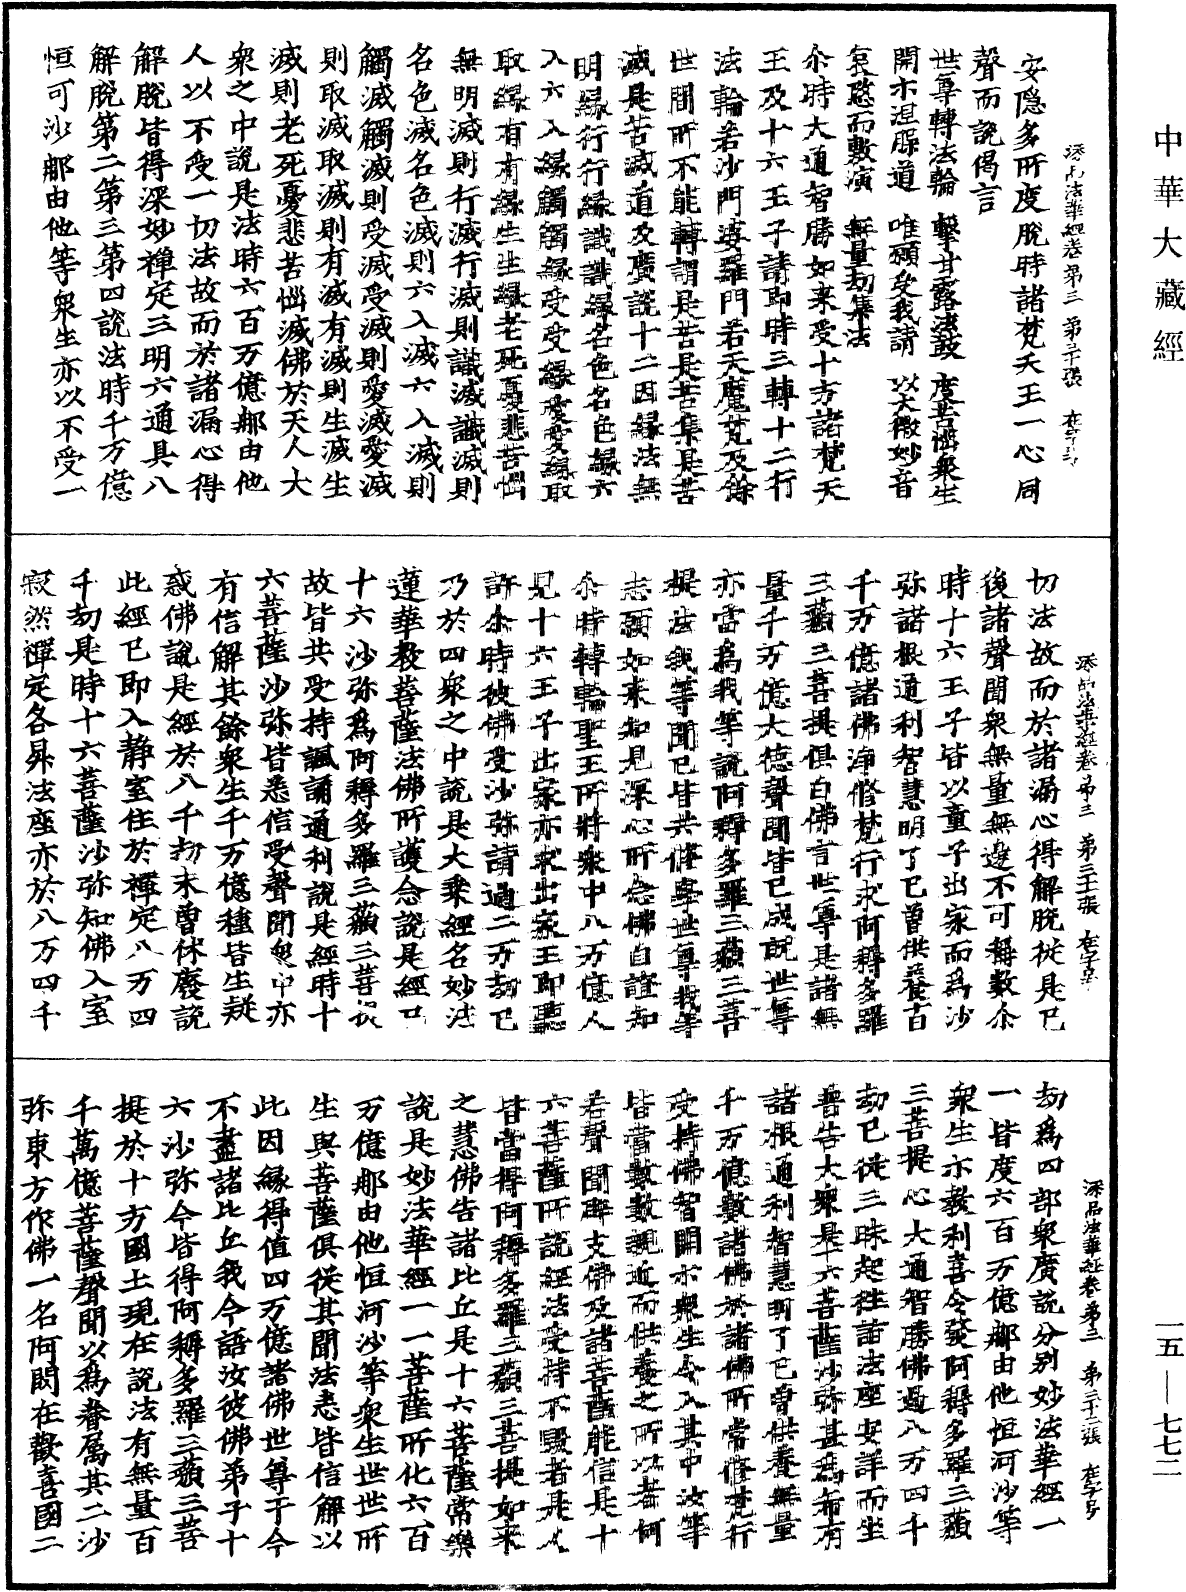 中華大藏經
添品法華經卷第三　第三十張　在字号
安隱多所度脫時諸梵天王一心同
聲而說偈言
世尊轉法輪　擊甘露法鼓　度苦惱衆生
開示涅槃道　唯願受我請　以大微妙音
哀愍而敷演　無量劫集法
尒時大通智勝如来受十方諸梵天
王及十六王子請即時三轉十二行
法輪若沙門婆羅門若天魔梵及餘
世間所不能轉謂是苦是苦集是苦
滅是苦滅道及廣說十二因緣法無
明緣行行緣識識緣名色名色緣六
入六入緣觸觸緣受受緣愛愛緣取
取緣有有緣生生緣老死憂悲苦惱
無明滅則行滅行滅則識滅識滅則
名色滅名色滅則六入滅六入滅則
觸滅觸滅則受滅受滅則愛滅愛滅
則取滅取滅則有滅有滅則生滅生
滅則老死憂悲苦惱滅佛於天人大
衆之中說是法時六百万億那由他
人以不受一切法故而於諸漏心得
解脫皆得深妙禪定三明六通具八
解脫第二第三第四說法時千万億
恒可沙那由他等衆生亦以不受一
添品法華經卷第三　第三十一張　在字号
切法故而於諸漏心得解脫從是已
後諸聲聞衆無量無邊不可稱數尒
時十六王子皆以童子出家而爲沙
弥諸根通利智慧明了已曾供養百
千万億諸佛淨修梵行求阿耨多羅
三藐三菩提俱白佛言世尊是諸無
量千万億大德聲聞皆已成就世尊
亦當爲我等說阿耨多羅三藐三菩
提法我等聞已皆共修學世尊我等
志願如来知見深心所念佛自證知
尒時轉輪聖王所將衆中八万億人
見十六王子出家亦求出家王即聽
許尒時彼佛受沙弥請過二万劫已
乃於四衆之中說是大乘經名妙法
蓮華教菩薩法佛所護念說是經已
十六沙弥爲阿耨多羅三藐三菩提
故皆共受持諷誦通利說是經時十
六菩薩沙弥皆悉信受聲聞衆中亦
有信解其餘衆生千万億種皆生疑
惑佛說是經於八千劫未曾休廢說
此經已即入靜室住於禪定八万四
千劫是時十六菩薩沙弥知佛入室
寂然禪定各昇法座亦於八万四千
添品法華經卷第三　第三十二張　在字号
劫爲四部衆廣說分别妙法華經一
一皆度六百万億那由他恒河沙等
衆生示教利喜令發阿耨多羅三藐
三菩提心大通智勝佛過八万四千
劫已從三昧起往詣法座安詳而坐
普告大衆是十六菩薩沙弥甚爲希有
諸根通利智慧明了已曾供養無量
千万億數諸佛於諸佛所常修梵行
受持佛智開示衆生令入其中汝等
皆當數數親近而供養之所以者何
若聲聞辟支佛及諸菩薩能信是十
六菩薩所說經法受持不毀者是人
皆當得阿耨多羅三藐三菩提如来
之慧佛告諸比丘是十六菩薩常樂
說是妙法華經一一菩薩所化六百
万億那由他恒河沙等衆生世世所
生與菩薩俱從其聞法悉皆信解以
此因緣得值四万億諸佛世尊于今
不盡諸比丘我今語汝彼佛弟子十
六沙弥今皆得阿耨多羅三藐三菩
提於十方國土現在說法有無量百
千萬億菩薩聲聞以爲眷属其二沙
弥東方作佛一名阿閦在歡喜國二
一五—七七二